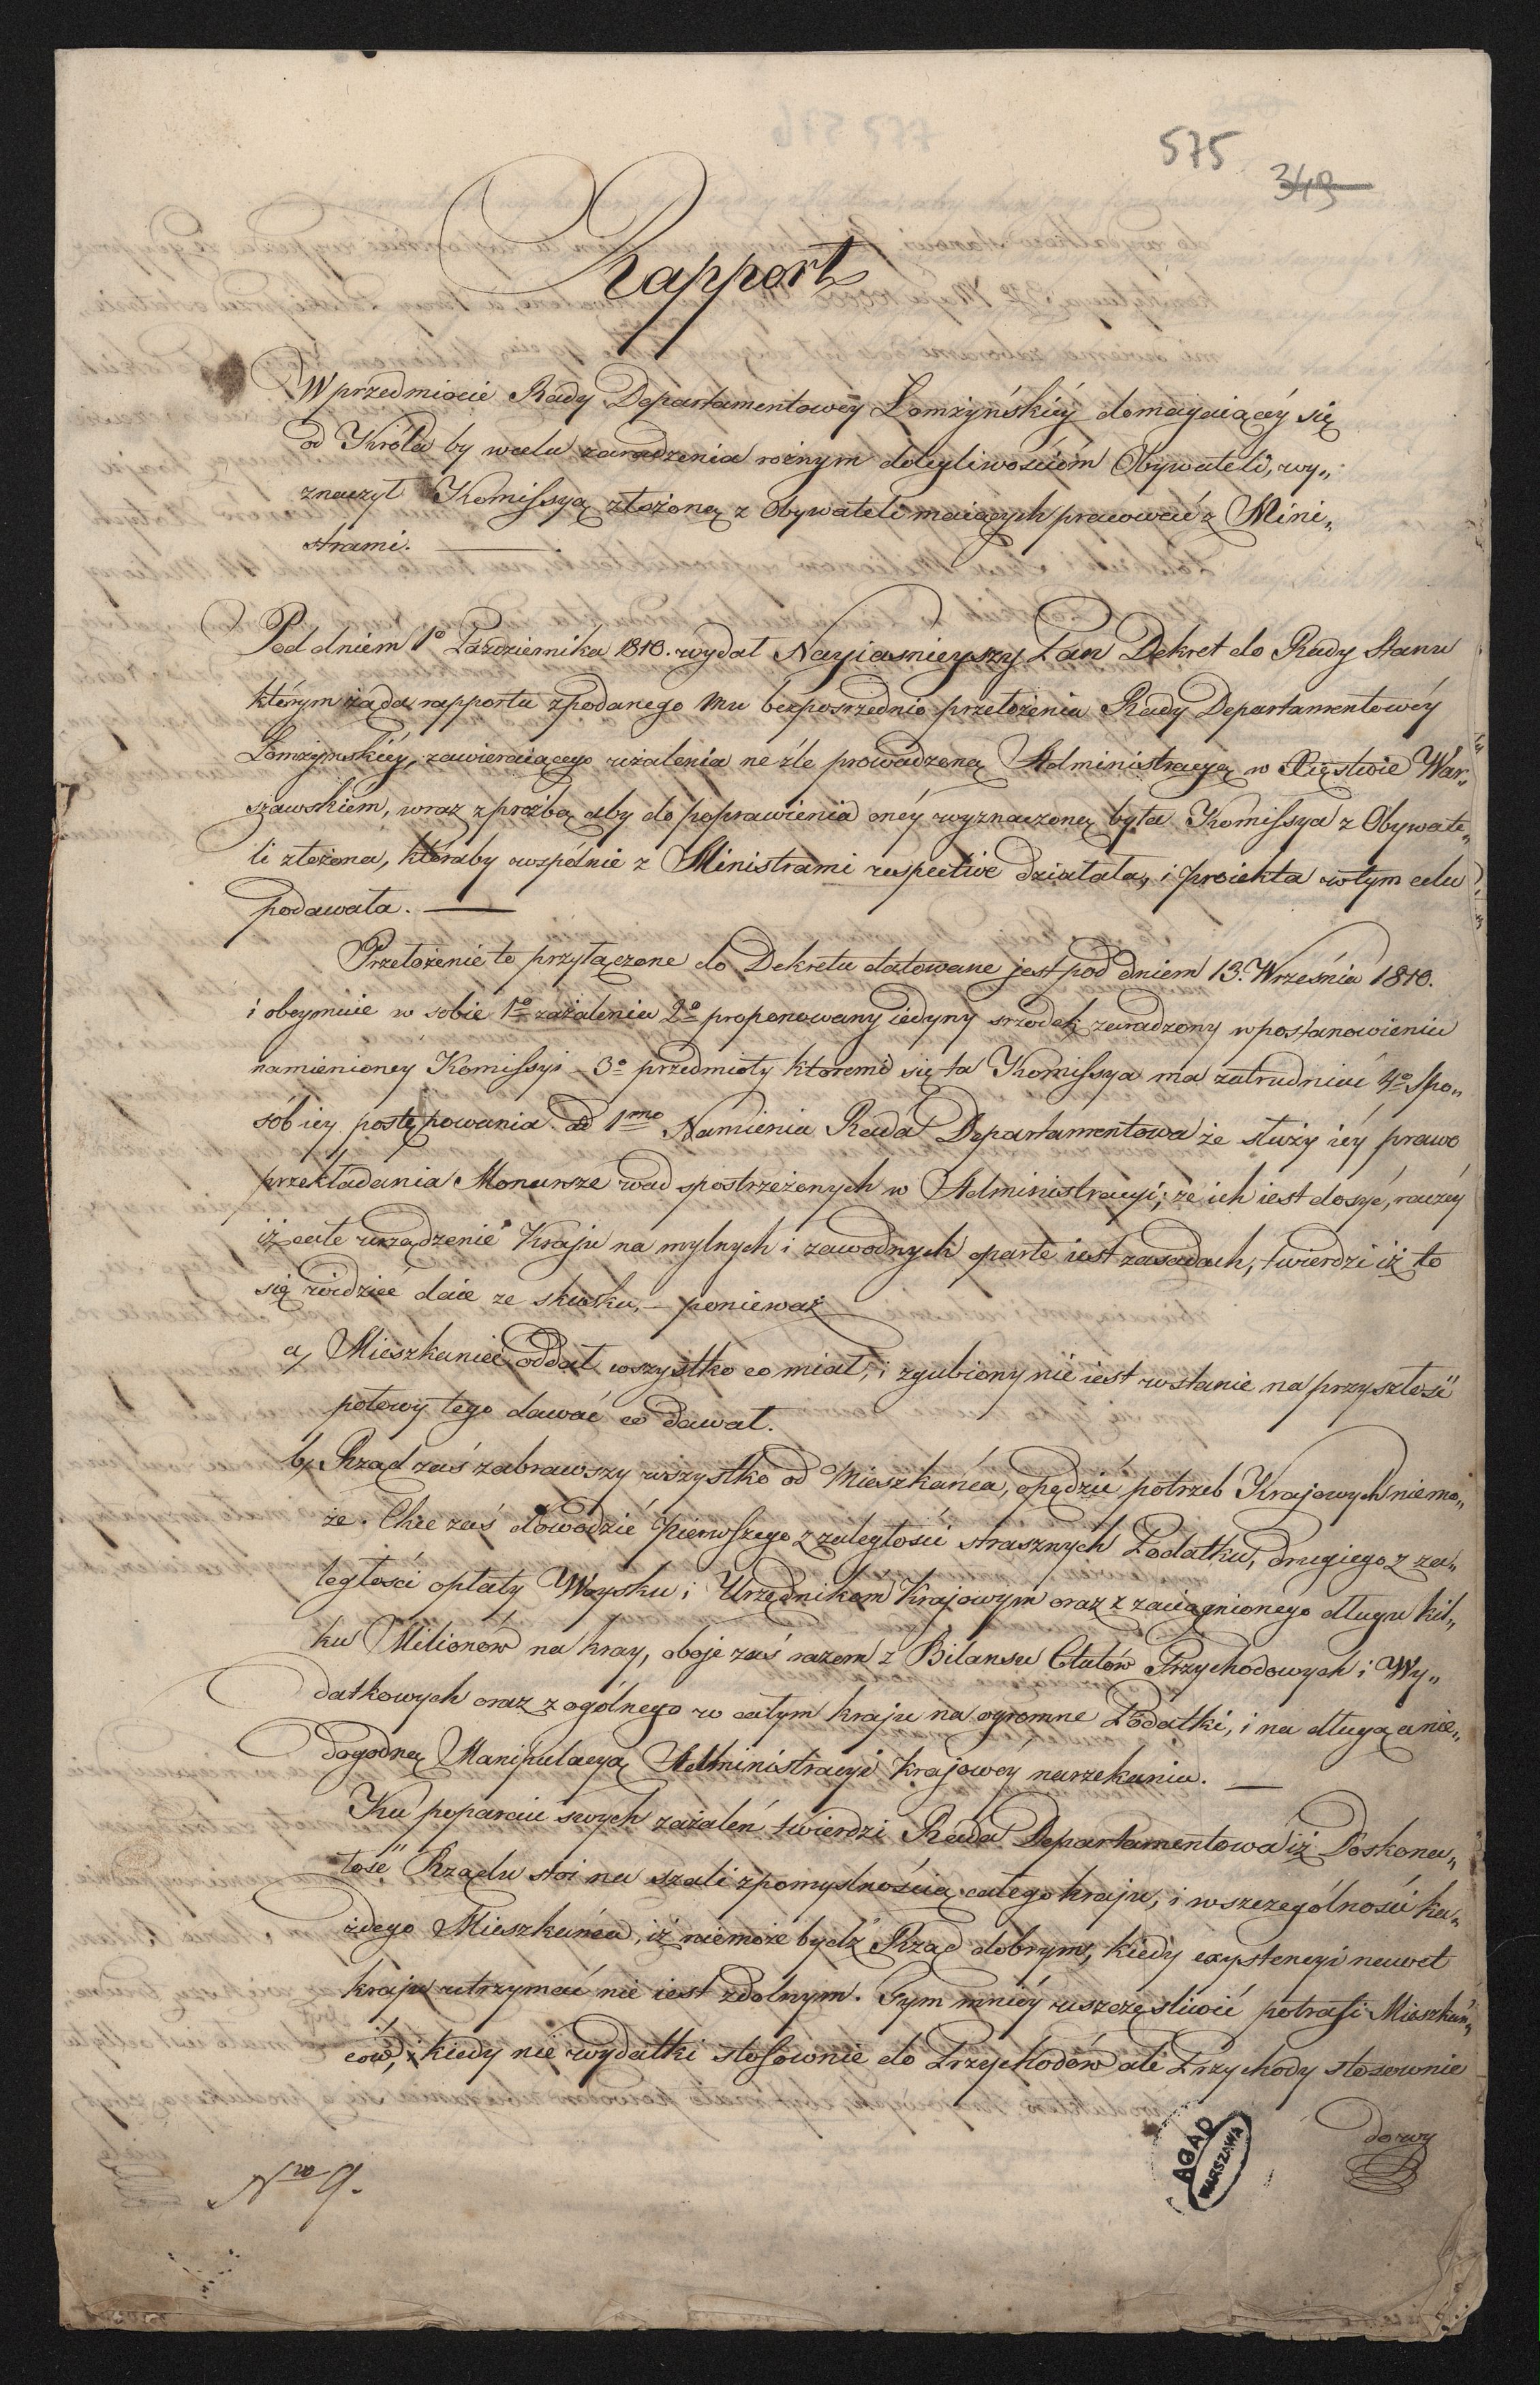 575
343
Rapport
W przedmiocie Rady Departamentowéy Łomżyńskiéy domagaiącéy się
od Króla by w celu zaradzenia rożnym dolegliwościom Obywateli, wy„
znaczył Komissyą złożoną z Obywateli maiących pracować z Mini„
strami. —
Pod dniem 1º Października 1810. wydał Nayiaśnieyszy Pan Dekret do Rady Stanu
którym żąda rapportu z podanego Mu bezpośrednio przełożenia Rady Departamentowéy
Łomżyńskiéy, zawieraiącego użalenia na źle prowadzoną Administracyą w Xięstwie War„
szawskiem, wraz z prożbą aby do poprawienia onéy wyznaczoną była Komissya z Obywate„
li złożona, któraby wspólnie z Ministrami respective działała, i proiekta w tym celu
podawała. —
Przełożenie to przyłączone do Dekretu datowane jest pod dniem 13. Września 1810.
i obeymuie w sobie 1º zażalenia 2º proponowany iedyny srzodek zaradzony w postanowieniu
namienioney Komissyi 3º przedmioty któremi się ta Komissya ma zatrudniać 4º Spo„
sób iey postępowania. ad 1mo Namienia Rada Departamentowa że służy iéy prawo
przekładania Monarsze wad spostrzeżonych w Administracyi; że ich iest dosyć, raczéy
iż całe urządzenie Kraju na mylnych i zawodnych oparte iest zasadach, twierdzi iż to
się widzieć daie ze skutku, — ponieważ
a, Mieszkaniec oddał wszystko co miał, i zgubiony nie iest w stanie na przyszłość
połowy tego dawać co dawał.
b, Rząd zaś zabrawszy wszystko od Mieszkańca, opędzić potrzeb Krajowych niemo„
że. Chce zaś dowodzić pierwszego z zaległości strasznych Podatku, drugiego z za„
ległości opłaty Woysku i Urzędnikom Krajowym oraz z zaciągnionego długu kil„
ku Milionów na kray, oboje zaś razem z Bilansu Etatów Przychodowych i Wy„
datkowych oraz z ogólnego w całym kraju na ogromne Podatki, i na długą a nie„
dogodną Manipulacyą Administracyi Krajowéy narzekania. —
Ku poparciu swych zażaleń twierdzi Rada Departamentowa iż Doskona„
łość Rządu stoi na szali z pomyslnością całego kraju, i w szczególności ka„
żdego Mieszkańca, iż niemoże bydź Rząd dobrym, kiedy exystencyi nawet
kraju utrzymać nie iest zdolnym. Tym mniéy uszczęsliwić potrafi Mieszkań„
ców, kiedy nie wydatki stosownie do Przychodów ale Przychody stosownie
do wy
Nro 9.
AGAD
WARSZAWA